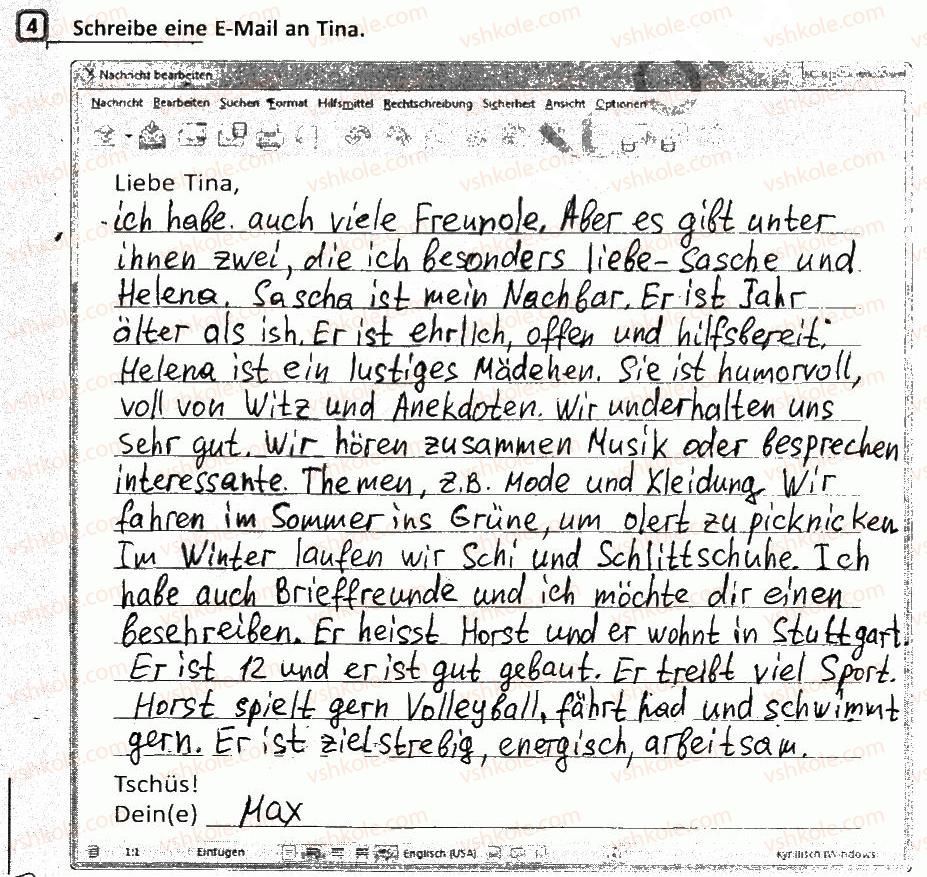 4 Schreibe eine E-Mail an Tina.
Nachricht bearbeiten
Nachricht Bearbeiten Suchen Format Hilfsmittel Rechtschreibung Sicherheit Ansicht Optionen
Liebe Tina,
ich habe auch viele Freunole. Aber es gibt unter
ihnen zwei, die ich besonders liebe – Sasche und
Helena. Sascha ist mein Nachbar. Er ist Jahr
älter als ish. Er ist ehrlich, offen und hilfsbereit.
Helena ist ein lustiges Mädehen. Sie ist humorvoll,
voll von Witz und Anekdoten. Wir underhalten uns
sehr gut. Wir hören zusammen Musik oder besprechen
interessante. Themen, z.B. Mode und Kleidung. Wir
fahren im Sommer ins Grüne, um olert zu picknicken
Im Winter laufen wir Schi und Schlittschuhe. Ich
habe auch Brieffreunde und ich möchte dir einen
besehreiben. Er heisst Horst und er wohnt in Stuttgart.
Er ist 12 und er ist gut gebaut. Er treibt viel Sport.
Horst spielt gern Volleyball, fährt had und schwimmt
gern. Er ist zielstrebig, energisch, arbeitsam.
Tschüs!
Dein(e) Max
1:1 Einfugen Englisch (USA)